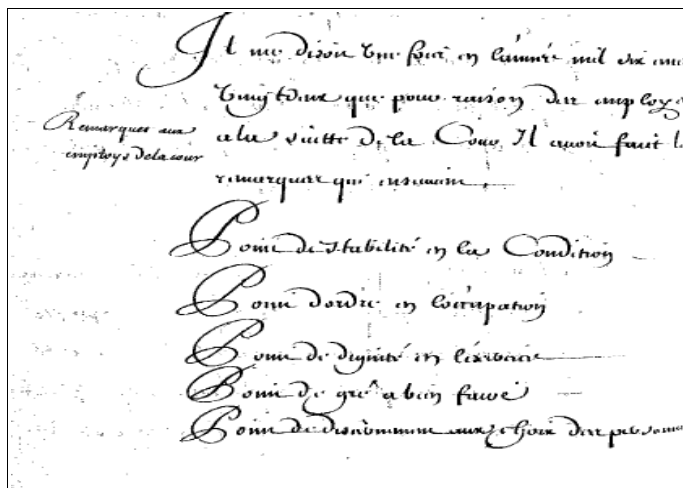 Il me disoit une fois en l'année mil six cen
vingt deux que pour raison des employs
Remarques aux
employs de la cour
a la suitte de la Cour Il avoit faict l
remarques qui ensuivent
Point de stabilité en la Condition
Point d'ordre en l'occupation
Point de dignité en l'exercice
Point de gré a bien faire
Point de aux choix des person